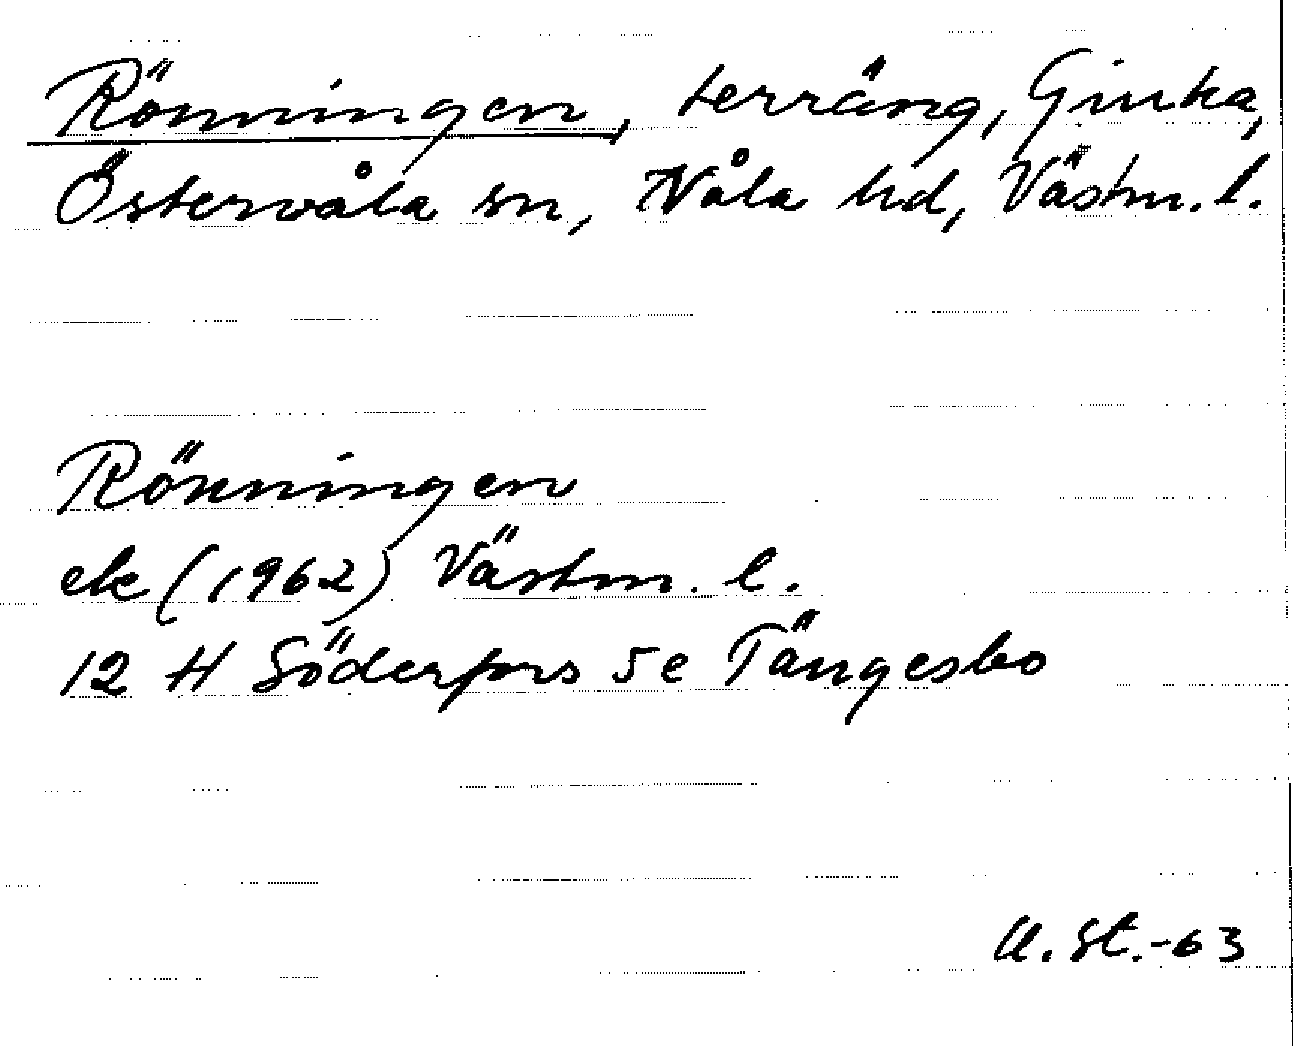 Rönningen, terräng, Ginka,
Östervåla sn, Våla hd, Västm. l.
Rönningen
ek (1962) Västm. l.
12 H Söderfors 5e Tängesbo
U. St.-63